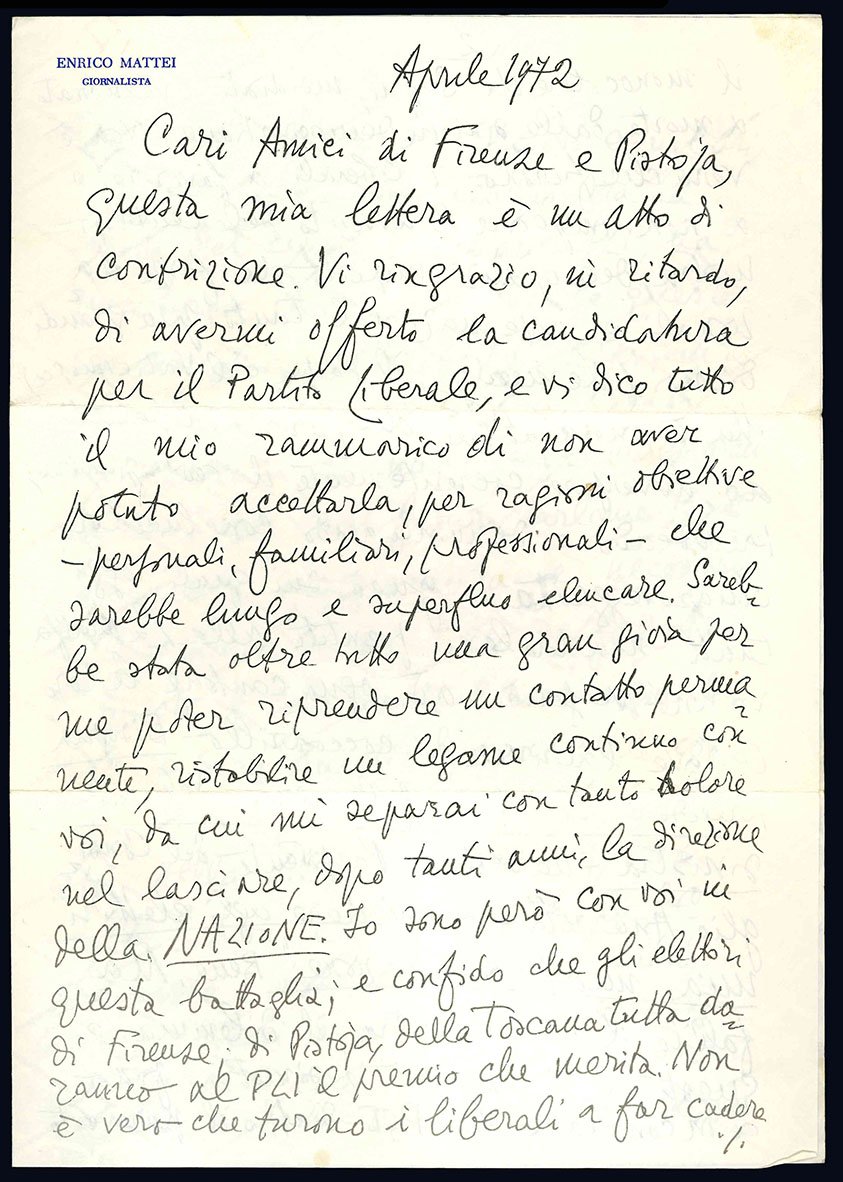 ENRICO MATTEI
GIORNALISTA
Aprile 1972
Cari Amici di Firenze e Pistoja,
questa mia lettera è un atto di
contrizione. Vi ringrazio, in ritardo,
di avermi offerto la candidatura
per il Partito Liberale, e vi dico tutto
il mio rammarico di non aver
potuto accettarla, per ragioni obiettive
– personali, familiari, professionali – che
sarebbe lungo e superfluo elencare. Sareb=
be stata oltre tutto una gran gioia per
me poter riprendere un contatto perma=
nente, ristabilire un legame continuo con
voi, da cui mi separai con tanto dolore
nel lasciare, dopo tanti anni, la direzione
della NAZIONE. Io sono però con voi in
questa battaglia; e confido che gli elettori
di Firenze, di Pistoja, della Toscana tutta da=
ranno al PLI il premio che merita. Non
è vero che furono i liberali a far cadere
./.